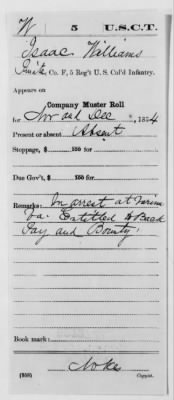 W 5 U.S.C.T.
Isaac Williams
Pvt., Co. F, 5 Reg't U. S. Col'd Infantry.
Appears on
Company Muster Roll
for Nov and Dec, 1864.
Present or absent Absent
Stoppage, $ 100 for
Due Gov't, $ 100 for
Remarks: In arrest at Varina
Va. Entitled to Back
Pay and Bounty.
Book mark:
(358) Copyist.